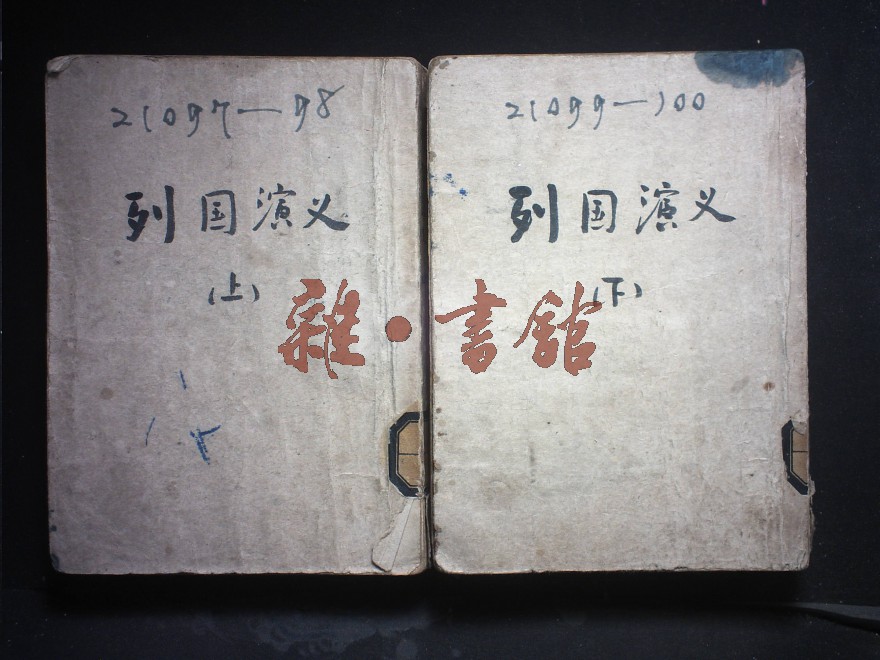 21097—98
列国演义
(上)
21099—100
列国演义
(下)
雜·書館